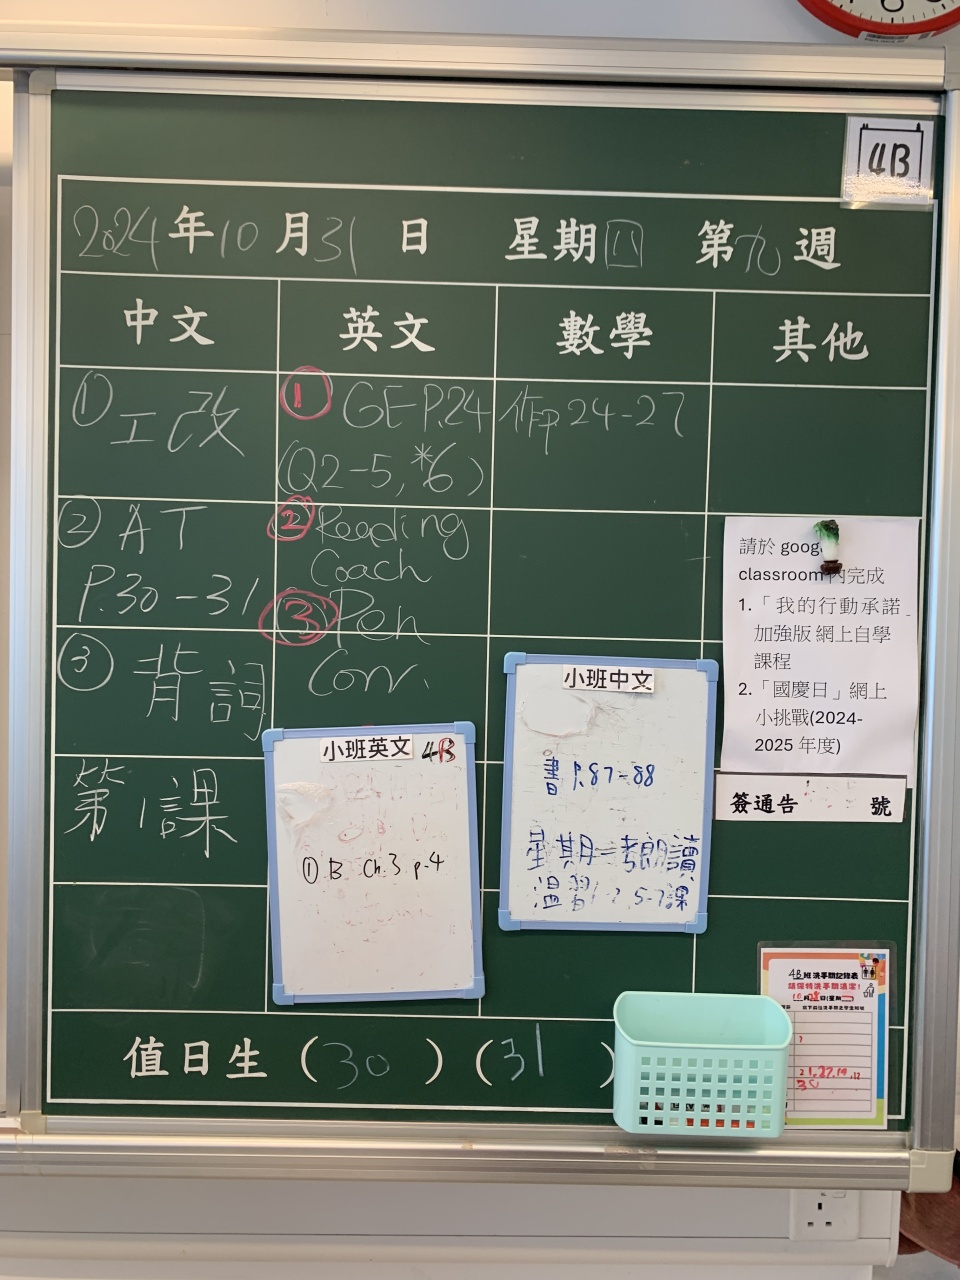 4B
2024年10月31日 星期四 第九週
中文 英文 數學 其他
① 工改
② AT
P.30-31
③ 背詞
第1課
① GE P.24
(Q2-5, *6)
② Reading
Coach
③ Pen
Corr.
作 P.24-27
請於 google
classroom 內完成
1.「我的行動承諾」
加強版 網上自學
課程
2.「國慶日」網上
小挑戰(2024-
2025 年度)
簽通告 號
小班英文 4B
① B Ch.3 p.4
小班中文
書 P.87-88
星期二考朗讀
溫習1-2, 5-7課
4B班洗手間記錄表
請保持洗手間清潔!
值日生 (30) (31)